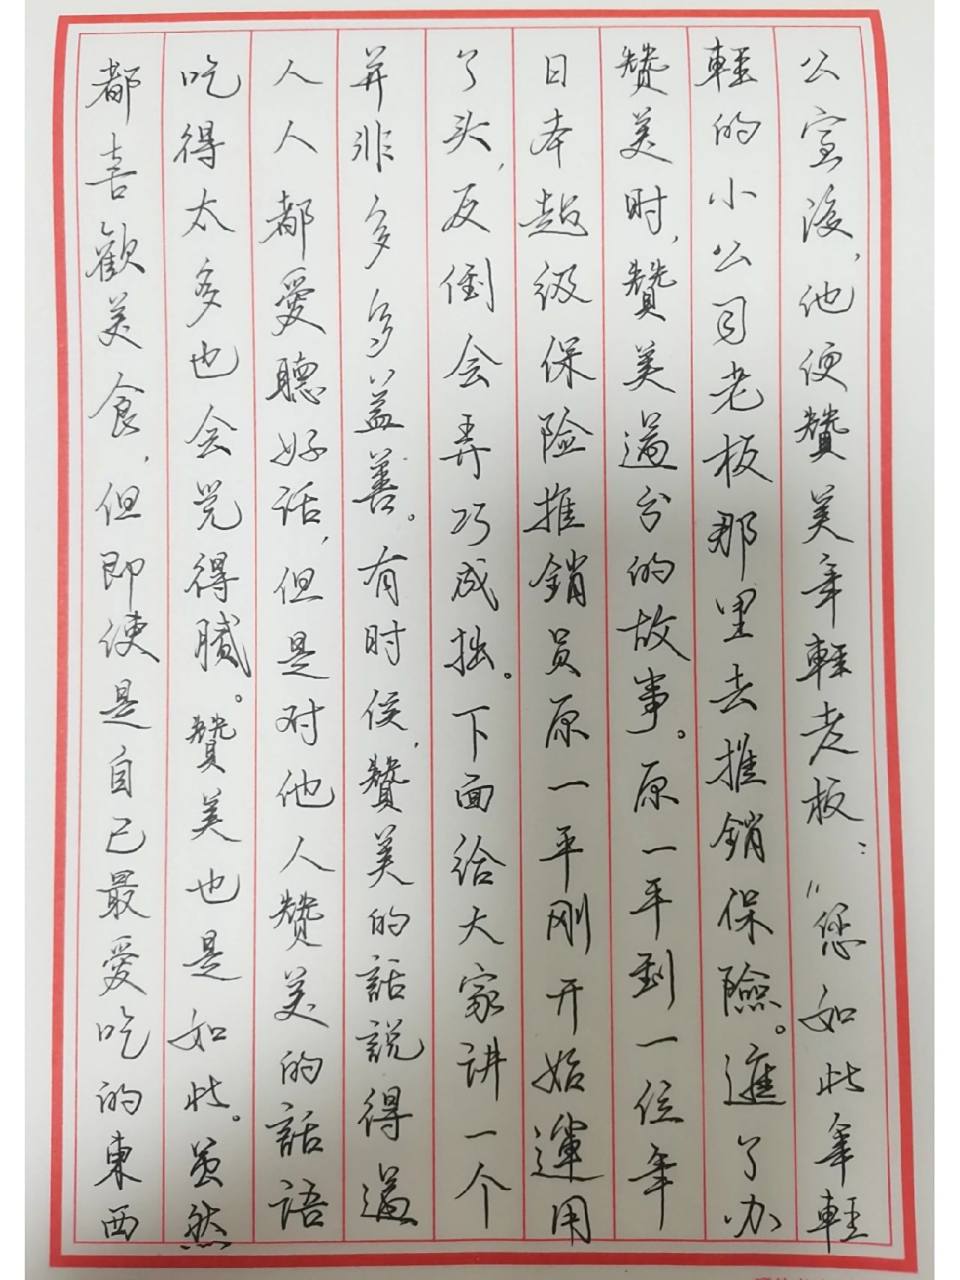 都喜歡美食，但即使是自己最愛吃的東西
吃得太多也会觉得膩。贊美也是如此。虽然
人人都愛聽好話，但是对他人赞美的話語
并非多多益善。有时侯，贊美的話説得過
了头，反倒会弄巧成拙。下面给大家讲一个
日本超级保险推銷员原一平刚开始運用
赞美时，贊美過分的故事。原一平到一位年
輕的小公司老板那里去推銷保險。進了办
公室後，他便贊美年輕老板：“您如此年輕